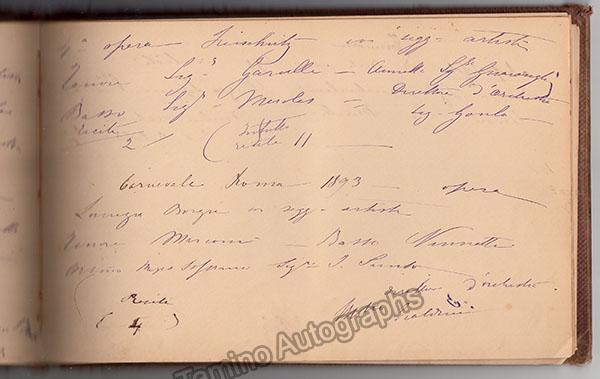 4ª opera Freischütz con sigg. artisti
Tenore Sigʳ Garulli — Annetta Sgᵃ
Basso Sigʳ Meroles — Direttore d'orchestra
Recite Sig. Goula —
2 / ( In tutto
recite 11 —
Carnevale Roma — 1893 — opera
Lucrezia Borgia con sigg. artisti
Tenore Marconi — Basso Nannetti
Orsino Mezzo Soprano Sigʳᵃ
Recite direttore d'orchestra.
( 4 )
Tamino Autographs